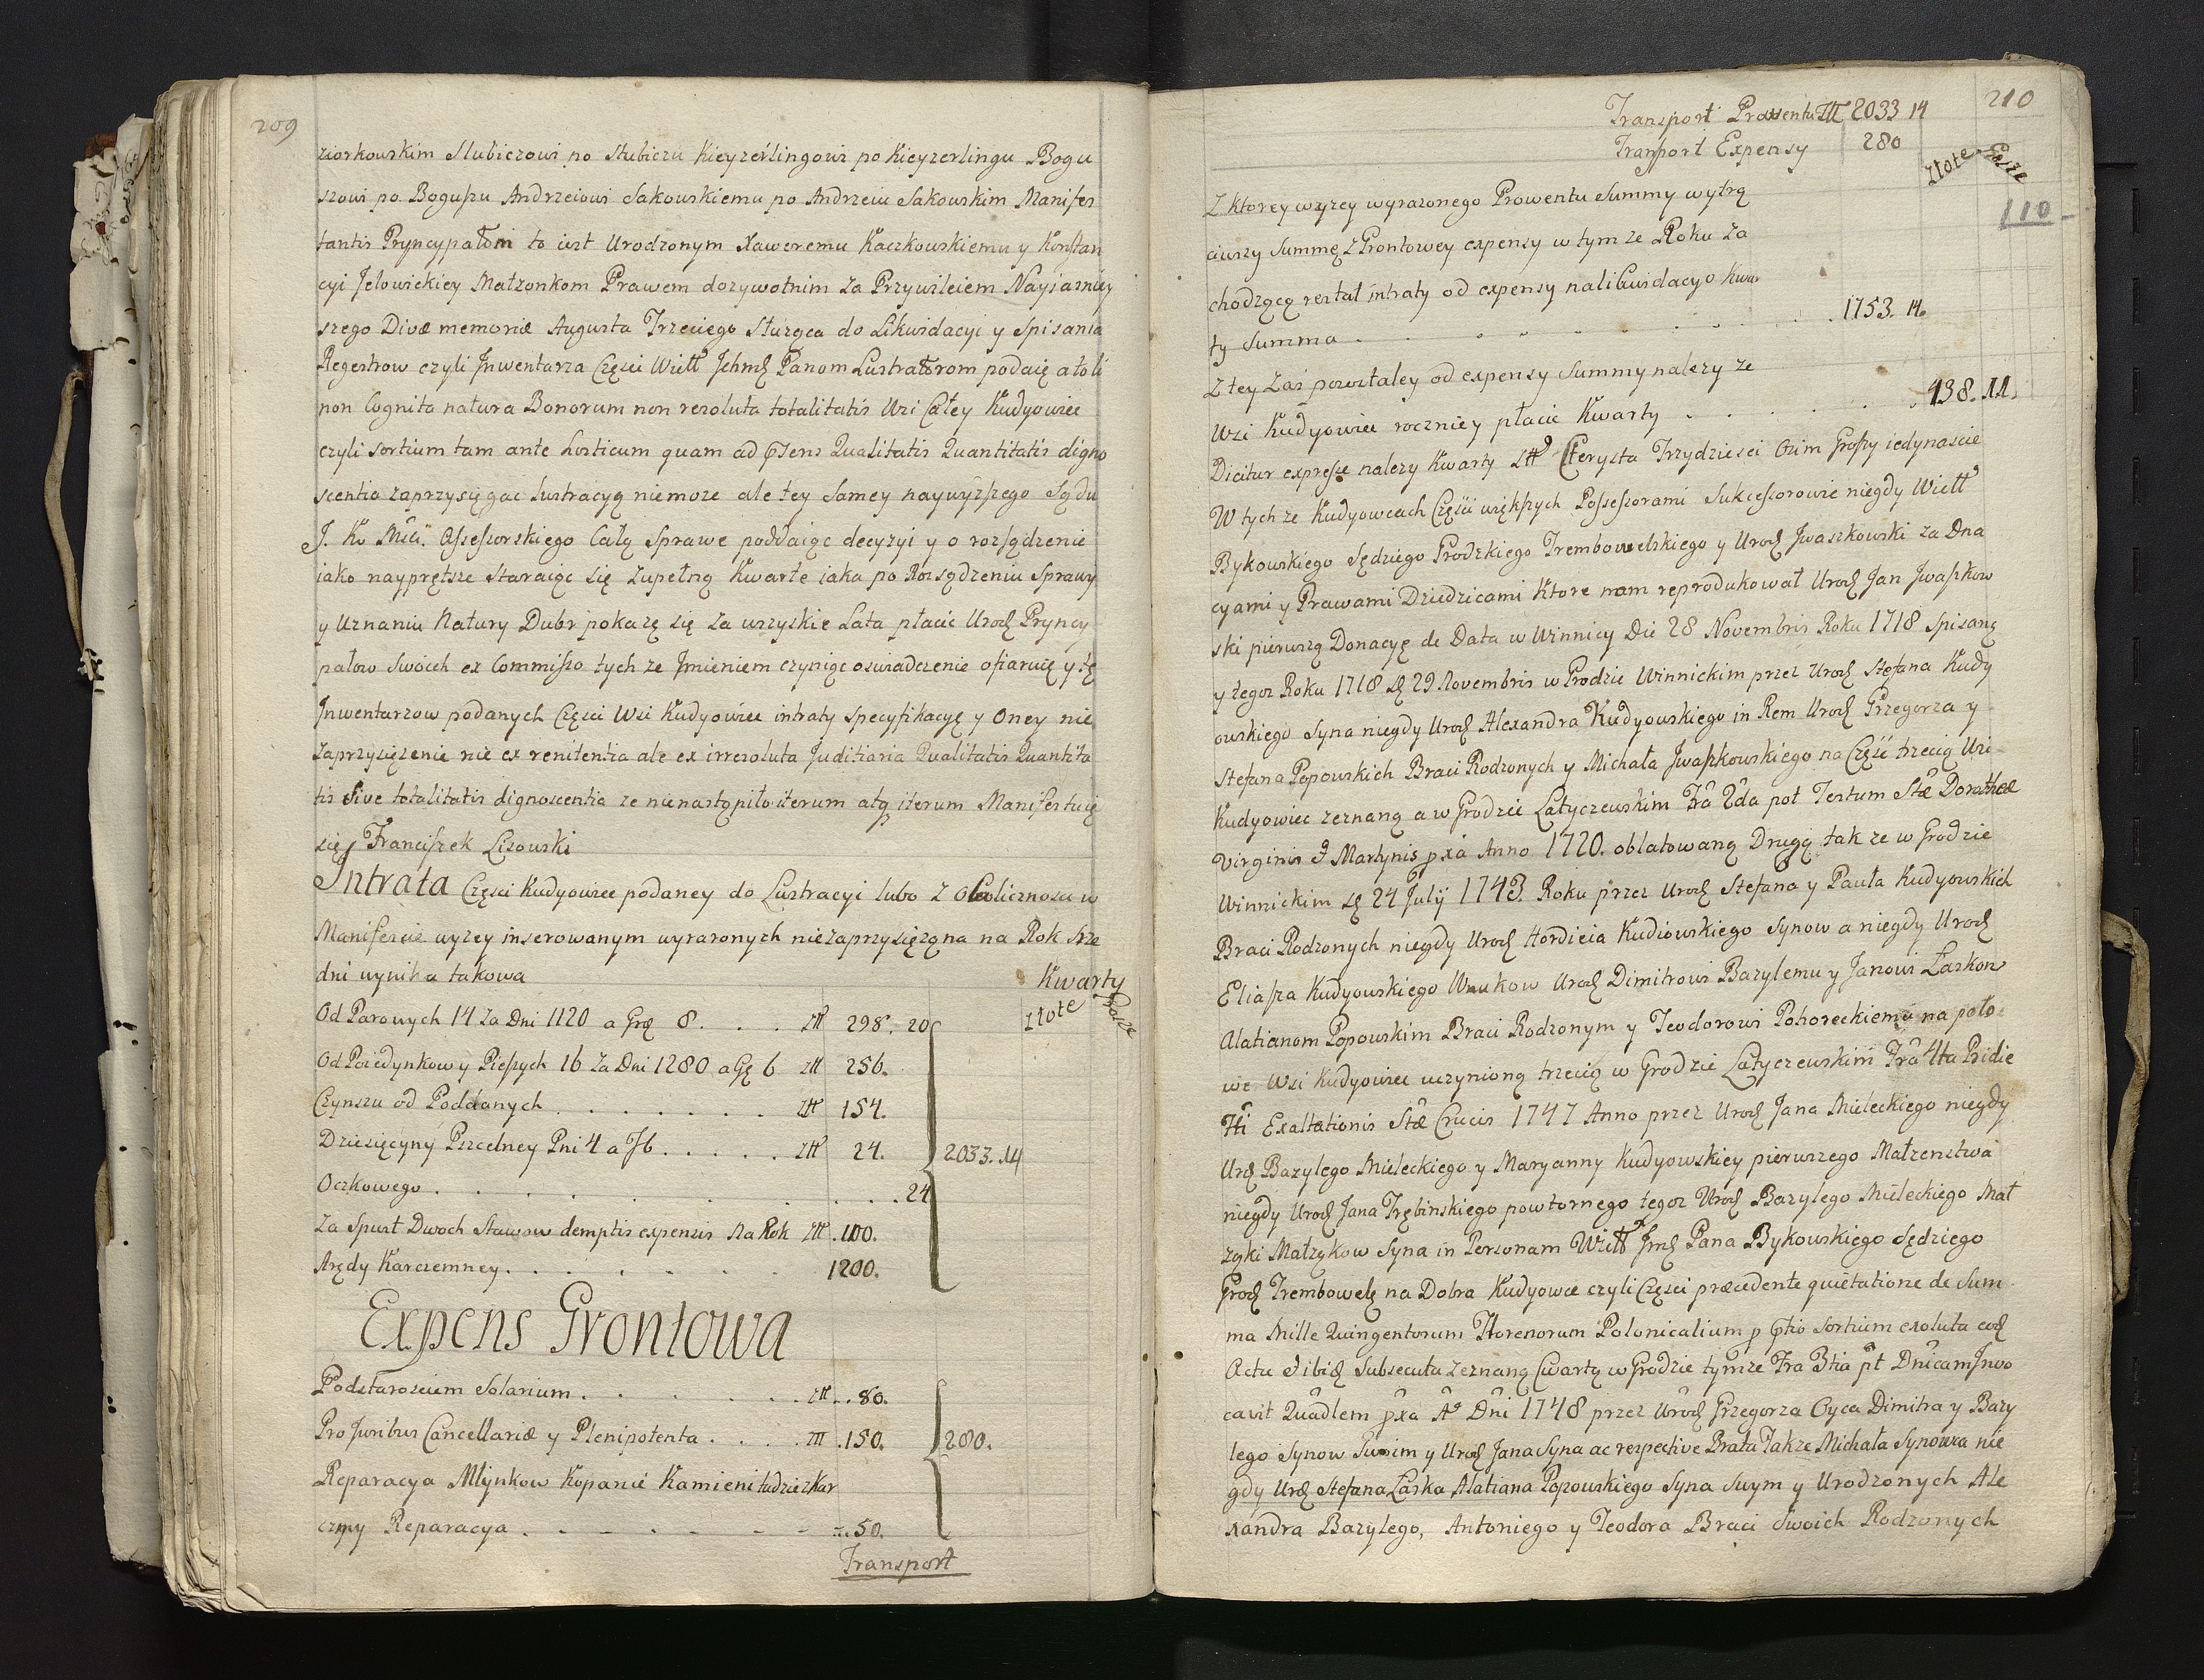 209
ziorkowskim Slubiczowi po Slubiczu Kieyzerlingowi po Kieyzerlingu Bogu
szowi po Boguszu Andrzeiowi Sakowskiemu po Andrzeiu Sakowskim Manifes
tantis Pryncypałom to iest Urodzonym Xaweremu Kaczkowskiemu y Konstan
cyi Jełowickiey Małzonkom Prawem dozywotnim za Przywileiem Nayiasniey
szego Divæ memoriæ Augusta Trzeciego Słuząca do Likwidacyi y Spisania
Regestrow czyli Jnwentarza Części Wiell Jchmć Panom Lustratorom podaię a toli
non Cognita natura Bonorum non resoluta totalitatis Wsi Całey Kudyowiec
czyli sortium tam ante hosticum quam ad psens Qualitatis Quantitatis digno
scentia zaprzysięgac lustracyą niemoze ale tey Samey naywyższego Sądu
J. K. Mci. Assessorskiego Całą Sprawe poddaiąc decyzyi y o rozsądzenie
iako nayprętsze staraiąc się zupełną Kwarte iaka po Rozsądzeniu Sprawy
y Uznaniu Natury Dubr pokaze się za wszyskie Lata płacic Urod Pryncy
pałow Swoich ex Commisso tych ze Jmieniem czyniąc oswiadczenie ofiaruię y tę
Jnwentarzow podanych Części Wsi Kudyowiec intraty specyfikacyę y Oney nie
zaprzysiężenie nie ex renitentia ale ex irresoluta Juditiaria Qualitatis Quantita
tis sive totalitatis dignoscentia ze nienastąpiło iterum atq iterum Manifestuię
się Franciszek Lisowski
Jntrata Części Kudyowiec podaney do Lustracyi lubo z Okolicznosci w
Manifescie wyzey inserowanym wyrazonych niezaprzysiężona na Rok Srze
dni wynika takowa
Kwarty
Złote Grosze
Od Parowych 14 za Dni 1120 a Grę 8. . . . złł 298. 20
Od Poiedynkow y Pieszych 16 za Dni 1280 a Gę 6 złł 256.
Czynszu od Poddanych . . . . . . . złł 154.
Dziesięcyny Pszczelney Pni 4 a f 6 . . . . . złł 24.
2033. 14
Oczkowego . . . . . . . . 24
Za Spust Dwoch Stawow demptis expensis na Rok złł . 100.
Arędy Karczemney . . . . . . 1200.
Expens Grontowa
Podstarosciem Solarium . . . . . . . złł . . 80.
Pro Juribus Cancellariæ y Plenipotenta . . . . złł . 150.
280.
Reparacya Młynkow Kopanie Kamieni tudziez Kar
czmy Reparacya . . . . . . . z. 50.
Transport
210
Transport Prowentu złł 2033 14
Tranport Expensy 280
Złote Grosze
110
Z Ktorey wyzey wyrazonego Prowentu Summy wytrą
ciwszy Summę z Grontowey expensy w tym ze Roku za
chodzącą restat intraty od expensy na likwidacyo Kwar
ty Summa . . . . . . . . . 1753. 14.
Z tey Zaś pozostałey od expensy Summy nalezy ze
Wsi Kudyowiec roczniey płacic Kwarty . . . . . . 438. 11.
Dicitur expresse nalezy Kwarty złł Cterysta Trzydziesci Osim Groszy iedynascie
W tych ze Kudyowcach Części większych Possessorami Sukcessorowie niegdy Wiell
Bykowskiego Sędziego Grodzkiego Trembowelskiego y Urod Jwaszkowski za Dna
cyami y Prawami Dziedzicami Ktore nam reprodukował Urod Jan Jwaszkow
ski pierwszą Donacyę de Data w Winnicy Die 28 Novembris Roku 1718 Spisaną
y tegoz Roku 1718 d 29 Novembris w Grodzie Winnickim przez Urod Stefana Kudy
owskiego Syna niegdy Urod Alexandra Kudyowskiego in Rem Urod Grzegorza y
Stefana Popowskich Braci Rodzonych y Michała Jwaszkowskiego na Część trzecią Wsi
Kudyowiec zeznaną a w Grodzie Latyczewskim Fra 2da post Festum Stæ Dorotheæ
Virginis & Martynis pxa Anno 1720. oblatowaną Drugą tak ze w Grodzie
Winnickim d 24 Julÿ 1743. Roku przez Urod Stefana y Pawła Kudyowskich
Braci Rodzonych niegdy Urod Hordieia Kudiowskiego Synow a niegdy Urod
Eliasza Kudyowskiego Wnukow Urod Dimitrowi Bazylemu y Janowi Łaskon
Alatianom Popowskim Braci Rodzonym y Teodorowi Pohoreckiemu na poło
we Wsi Kudyowiec uczynioną trzecią w Grodzie Latyczewskim Fra 4ta Pridie
Fti Exaltationis Stæ Crucis 1747 Anno przez Urod Jana Mieleckiego niegdy
Urd Bazylego Mieleckiego y Maryanny Kudyowskiey pierwszego Małzenstwa
niegdy Urod Jana Trębinskiego powtornego tegoz Urod Bazylego Mieleckiego Mał
ząki Małząkow Syna in Personam Wiell Jmć Pana Bykowskiego Sędziego
Grod Trembowelę na Dobra Kudyowce czyli Części præcedente quietatione de Sum
ma Mille Quingentorum Florenorum Polonicalium p ptio sortium exoluta eod
Actu & ibid Subsecuta zeznaną Cwartą w Grodzie tymże Fra 3tia pt Dnicam Jnvo
cavit Quadlem pxa Ao Dni 1748 przez Urod Grzegorza Oyca Dimitra y Bazy
lego Synow Swoim y Urod Jana Syna ac respective Brata Takze Michała Synowca nie
gdy Urod Stefana Łaska Alatiana Popowskiego Syna Swym y Urodzonych Ale
xandra Bazylego, Antoniego y Teodora Braci Swoich Rodzonych